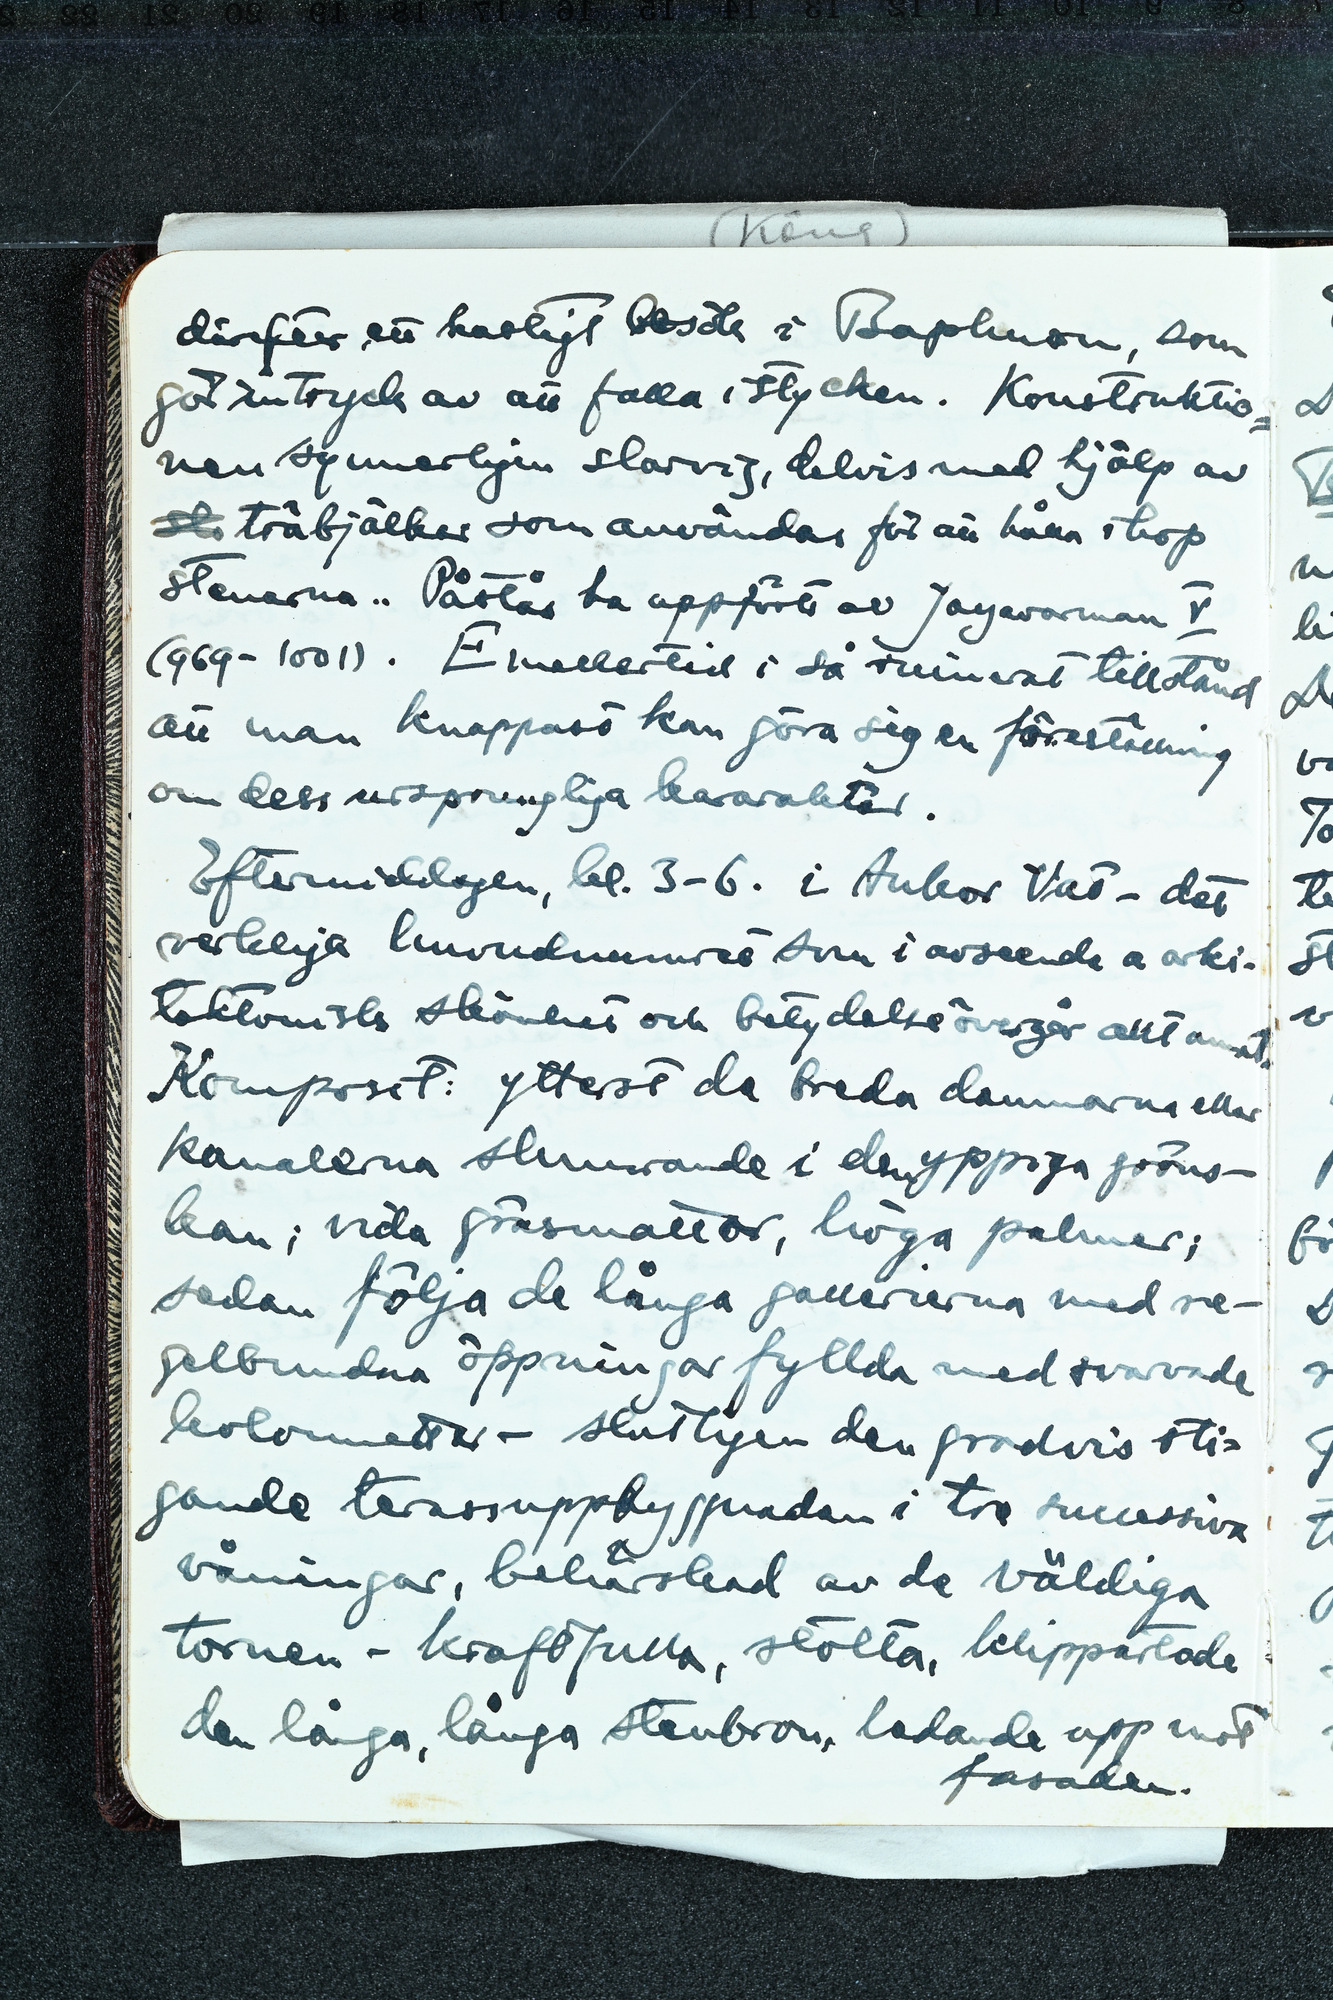 (Köng)
därefter ett hastigt besök i Baphuon, som
gör intryck av att falla i stycken. Konstruktio=
nen synnerligen slarvig, delvis med hjälp av
träbjälkar som användas för att hålla ihop
stenarna.. Påstås ha uppförts av Jayavarman V
(969-1001). Emellertid i så ruinerat tillstånd
att man knappast kan göra sig en föreställning
om dess ursprungliga kararaktär.
Eftermiddagen, kl. 3-6. i Ankor Vat - det
verkliga huvudnumret som i avseende a arki-
tektonisk skönhet och betydelse övergår allt annat.
Komposit: ytterst de breda dammarna eller
kanalerna slumrande i den yppiga gröns-
kan; vida gräsmattor, höga palmer;
sedan följa de långa gallerierna med re-
gelbundna öppningar fyllda med svarvade
kolonnetter - slutligen den gradvis sti=
gande terassuppbyggnaden i tre successiva
våningar, behärskad av de väldiga
tornen - kraftfulla, stolta, klippartade
den långa, långa stenbron, ledande upp mot
fasaden.